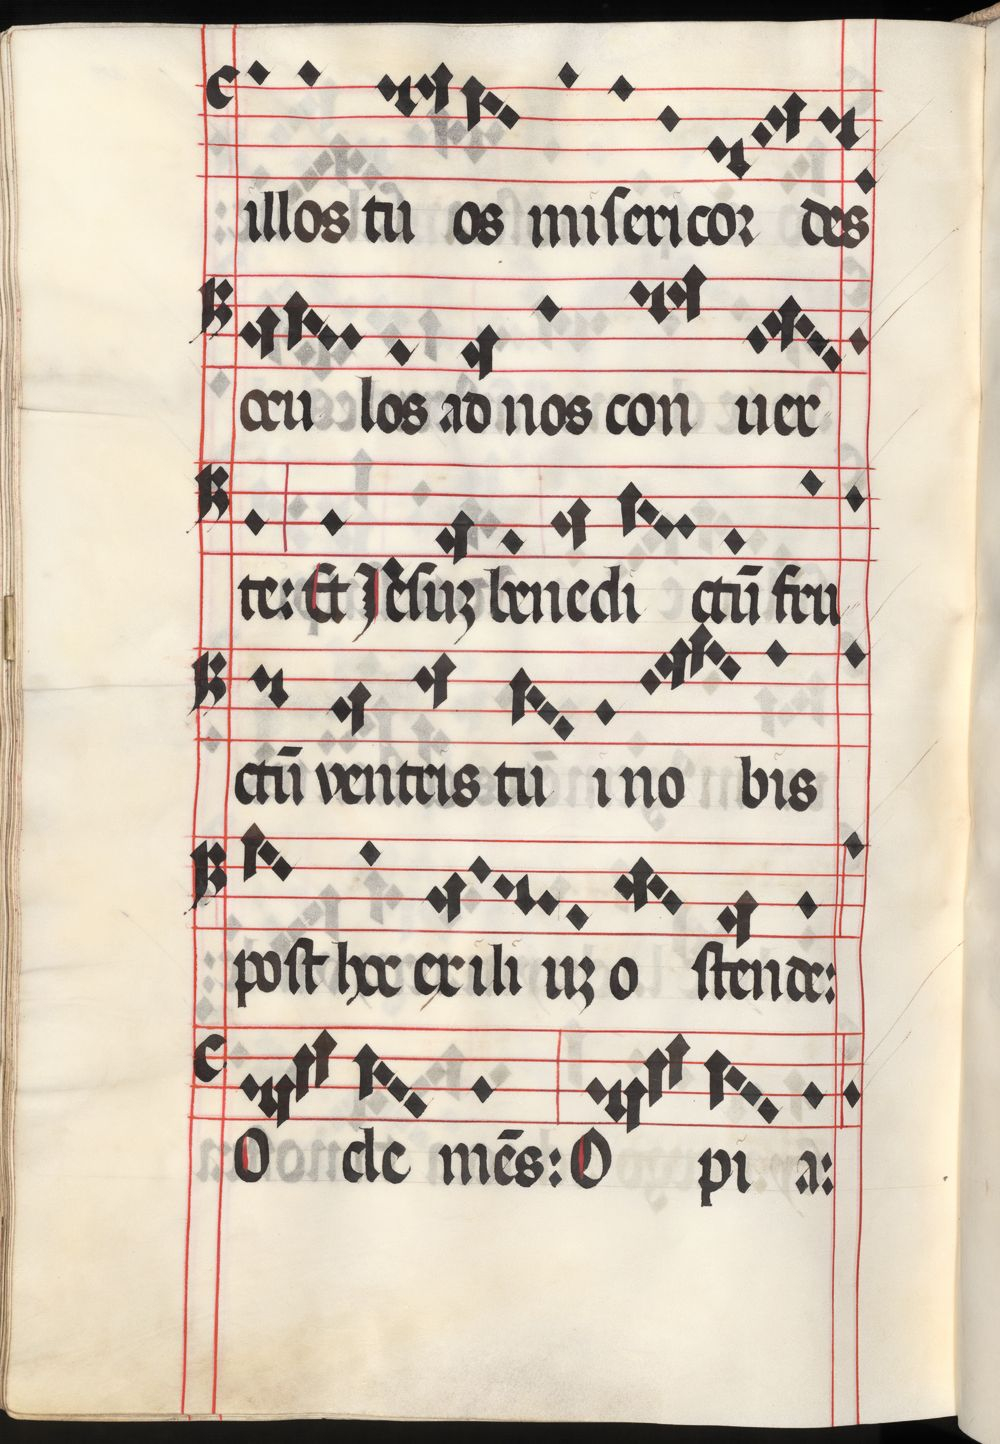 illos tu os misericor des
ocu los ad nos con uer
te: Et Jesuz benedi ctū fru
ctū ventris tu i no bis
post hoc exili uz o stende:
O cle mēs: O pi a: